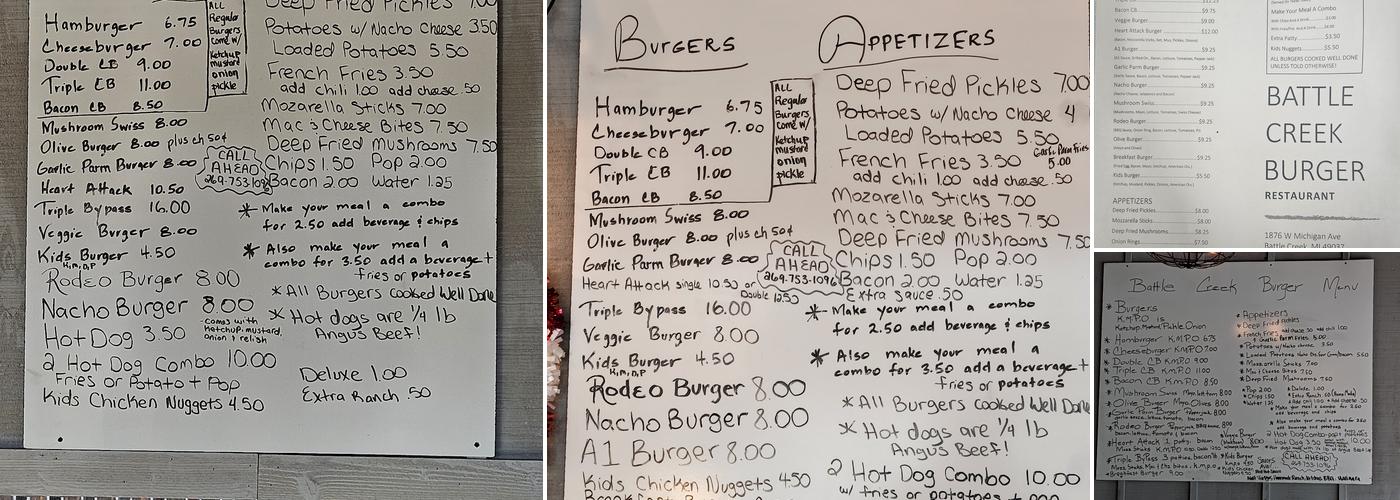 Deep Fried Pickles 7.00
Hamburger 6.75
Cheeseburger 7.00
Double CB 9.00
Triple CB 11.00
Bacon CB 8.50
ALL
Regular
Burgers
Come w/
Ketchup
mustard
onion
pickle
Mushroom Swiss 8.00
Olive Burger 8.00 plus ch 50¢
Garlic Parm Burger 8.00
Heart Attack 10.50
Triple Bypass 16.00
Veggie Burger 8.00
Kids Burger 4.50
K,M,O,P
Rodeo Burger 8.00
Nacho Burger 8.00
Hot Dog 3.50
comes with
Ketchup, mustard,
onion & relish
2 Hot Dog Combo 10.00
Fries or Potato + Pop
Kids Chicken Nuggets 4.50
Potatoes w/ Nacho Cheese 3.50
Loaded Potatoes 5.50
French Fries 3.50
add chili 1.00 add cheese .50
Mozarella Sticks 7.00
Mac & Cheese Bites 7.50
Deep Fried Mushrooms 7.50
CALL
AHEAD
269-753-1096
Chips 1.50 Pop 2.00
Bacon 2.00 Water 1.25
* Make your meal a combo
for 2.50 add beverage & chips
* Also make your meal a
combo for 3.50 add a beverage +
fries or potatoes
* All Burgers Cooked Well Done
* Hot dogs are 1/4 lb
Angus Beef!
Deluxe 1.00
Extra Ranch .50
BURGERS
Hamburger 6.75
Cheeseburger 7.00
Double CB 9.00
Triple CB 11.00
Bacon CB 8.50
ALL
Regular
Burgers
Come w/
Ketchup
mustard
onion
pickle
Mushroom Swiss 8.00
Olive Burger 8.00 plus ch 50¢
Garlic Parm Burger 8.00
Heart Attack single 10.50 or
Double 12.50
Triple Bypass 16.00
Veggie Burger 8.00
Kids Burger 4.50
K,M,O,P
Rodeo Burger 8.00
Nacho Burger 8.00
A1 Burger 8.00
Kids Chicken Nuggets 4.50
APPETIZERS
Deep Fried Pickles 7.00
Potatoes w/ Nacho Cheese 4
Loaded Potatoes 5.50
French Fries 3.50
Garl. Parm Fries
5.00
add chili 1.00 add cheese .50
Mozarella Sticks 7.00
Mac & Cheese Bites 7.50
Deep Fried Mushrooms 7.50
CALL
AHEAD
269-753-1096
Chips 1.50 Pop 2.00
Bacon 2.00 Water 1.25
Extra Sauce .50
* Make your meal a combo
for 2.50 add beverage & chips
* Also make your meal a
combo for 3.50 add a beverage +
fries or potatoes
* All Burgers Cooked Well Done
* Hot dogs are 1/4 lb
Angus Beef!
2 Hot Dog Combo 10.00
w/ fries or potatoes +
Bacon CB $9.75
Veggie Burger $9.00
Heart Attack Burger $12.00
A1 Burger $9.25
Garlic Parm Burger $9.25
Nacho Burger $9.25
Mushroom Swiss $9.25
Rodeo Burger $9.25
Olive Burger $9.25
Breakfast Burger $9.25
Kids Burger $5.50
APPETIZERS
Deep Fried Pickles $8.00
Mozzarella Sticks $8.00
Deep Fried Mushrooms $8.25
Onion Rings $7.50
Make Your Meal A Combo
Extra Patty $3.50
Kids Nuggets $5.50
ALL BURGERS COOKED WELL DONE
UNLESS TOLD OTHERWISE!
BATTLE
CREEK
BURGER
RESTAURANT
1876 W Michigan
Battle Creek, MI 49037
Battle Creek Burger Menu
* Burgers
K.M.P.O is
Ketchup, Mustard, Pickle, Onion
* Hamburger K.M.P.O 6.75
* Cheeseburger K.M.P.O 7.00
* Double CB K.M.P.O 9.00
* Triple CB K.M.P.O 11.00
* Bacon CB K.M.P.O 8.50
* Appetizers
* Deep Fried Pickles
* Mozzarella Sticks 7.00
* Mac & Cheese Bites 7.50
* Deep Fried Mushrooms 7.50
CALL AHEAD!